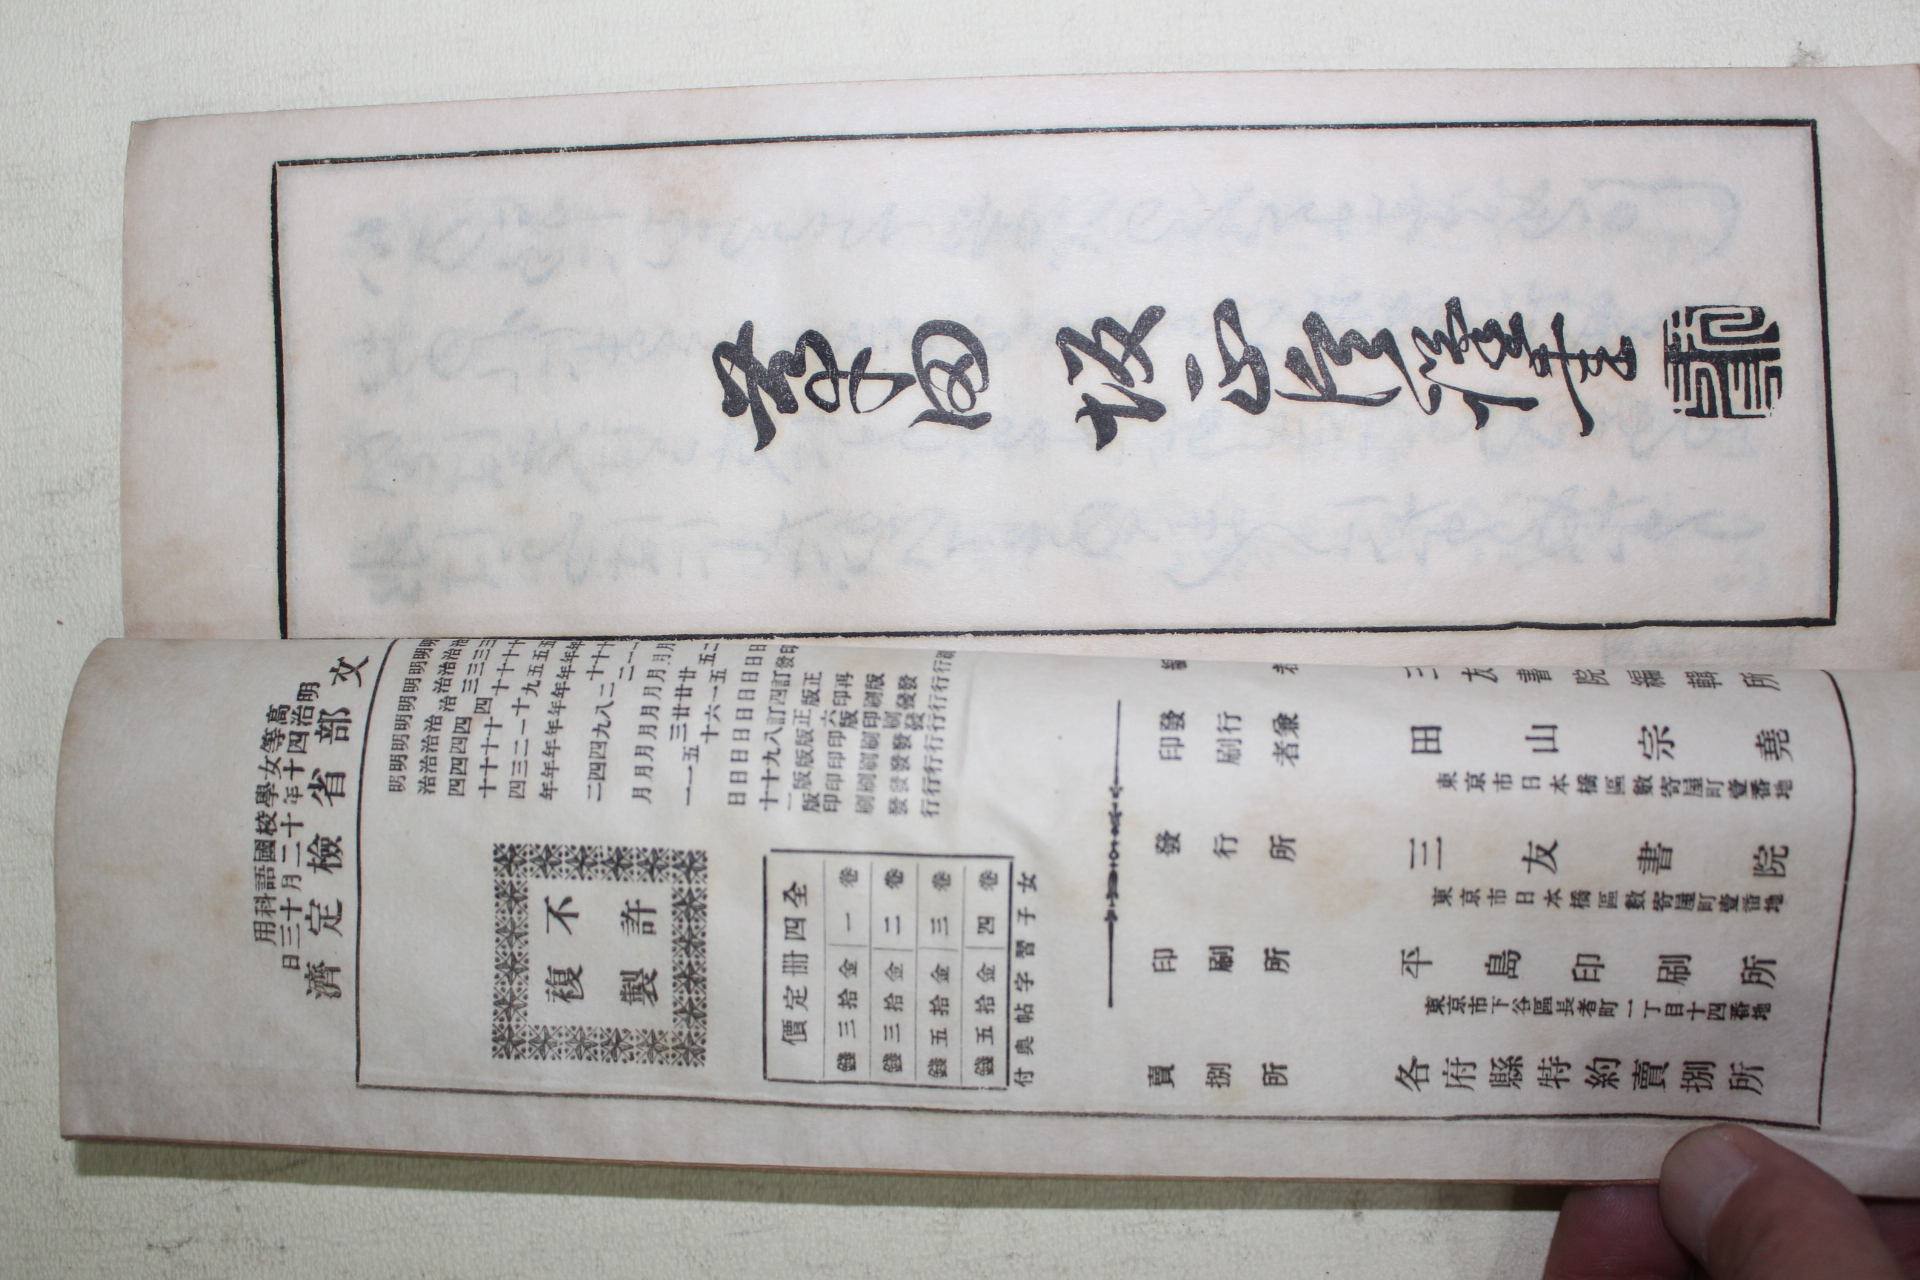 坂正臣謹書
高等女學校國語科用
明治四十年十二月十三日
文部省檢定濟
明治三十九年二月廿一日四版印刷發行
明治四十年八月廿六日訂正六版印刷發行
明治四十一年九月三十日八版印刷發行
明治四十二年四月五日九版印刷發行
明治四十三年四月一日十版印刷發行
明治四十四年二月一日十一版印刷發行
不許
複製
全四冊定價
卷一 金拾三錢
卷二 金拾三錢
卷三 金拾五錢
卷四 金拾五錢
女子習字帖奥付
三友書院編輯所
發行兼
印刷者
田山宗堯
東京市日本橋區數寄屋町壹番地
發行所
三友書院
東京市日本橋區數寄屋町壹番地
印刷所
平島印刷所
東京市下谷區長者町一丁目十四番地
賣捌所
各府縣特約賣捌所